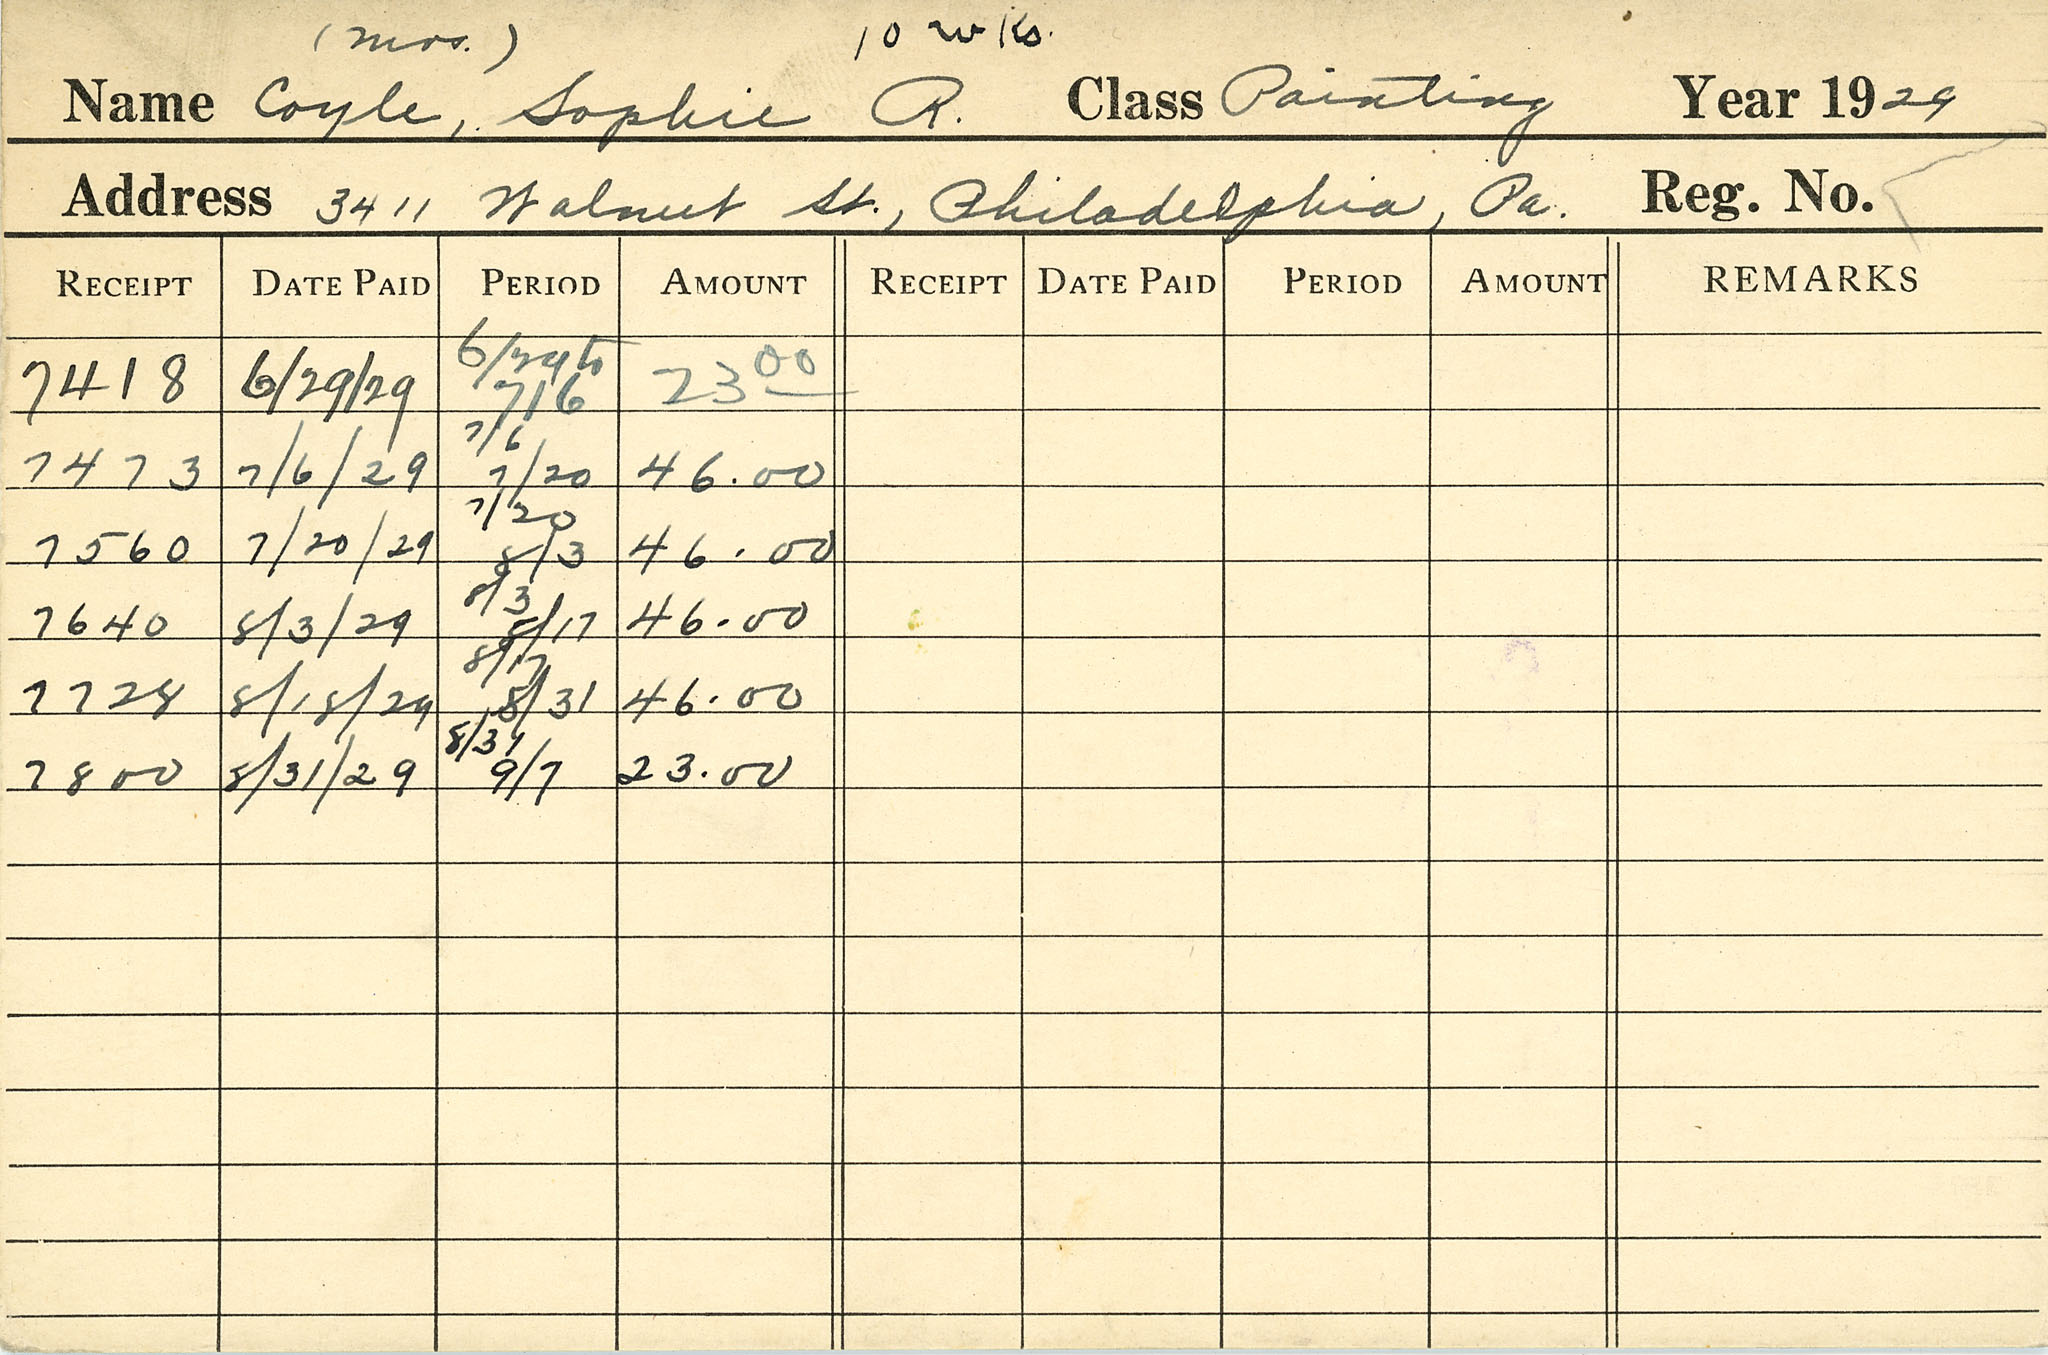 (Mrs.) 10 wks.
Name Coyle, Sophie R. Class Painting Year 1929
Address 3411 Walnut St., Philadelphia, Pa. Reg. No.
RECEIPT DATE PAID PERIOD AMOUNT RECEIPT DATE PAID PERIOD AMOUNT REMARKS
6/29 to
7418 6/29/29 7/6 23 00
7/6
7473 7/6/29 7/20 46.00
7/20
7560 7/20/29 8/3 46.00
8/3
7640 8/3/29 8/17 46.00
8/17
7728 8/18/29 8/31 46.00
8/31
7800 8/31/29 9/7 23.00